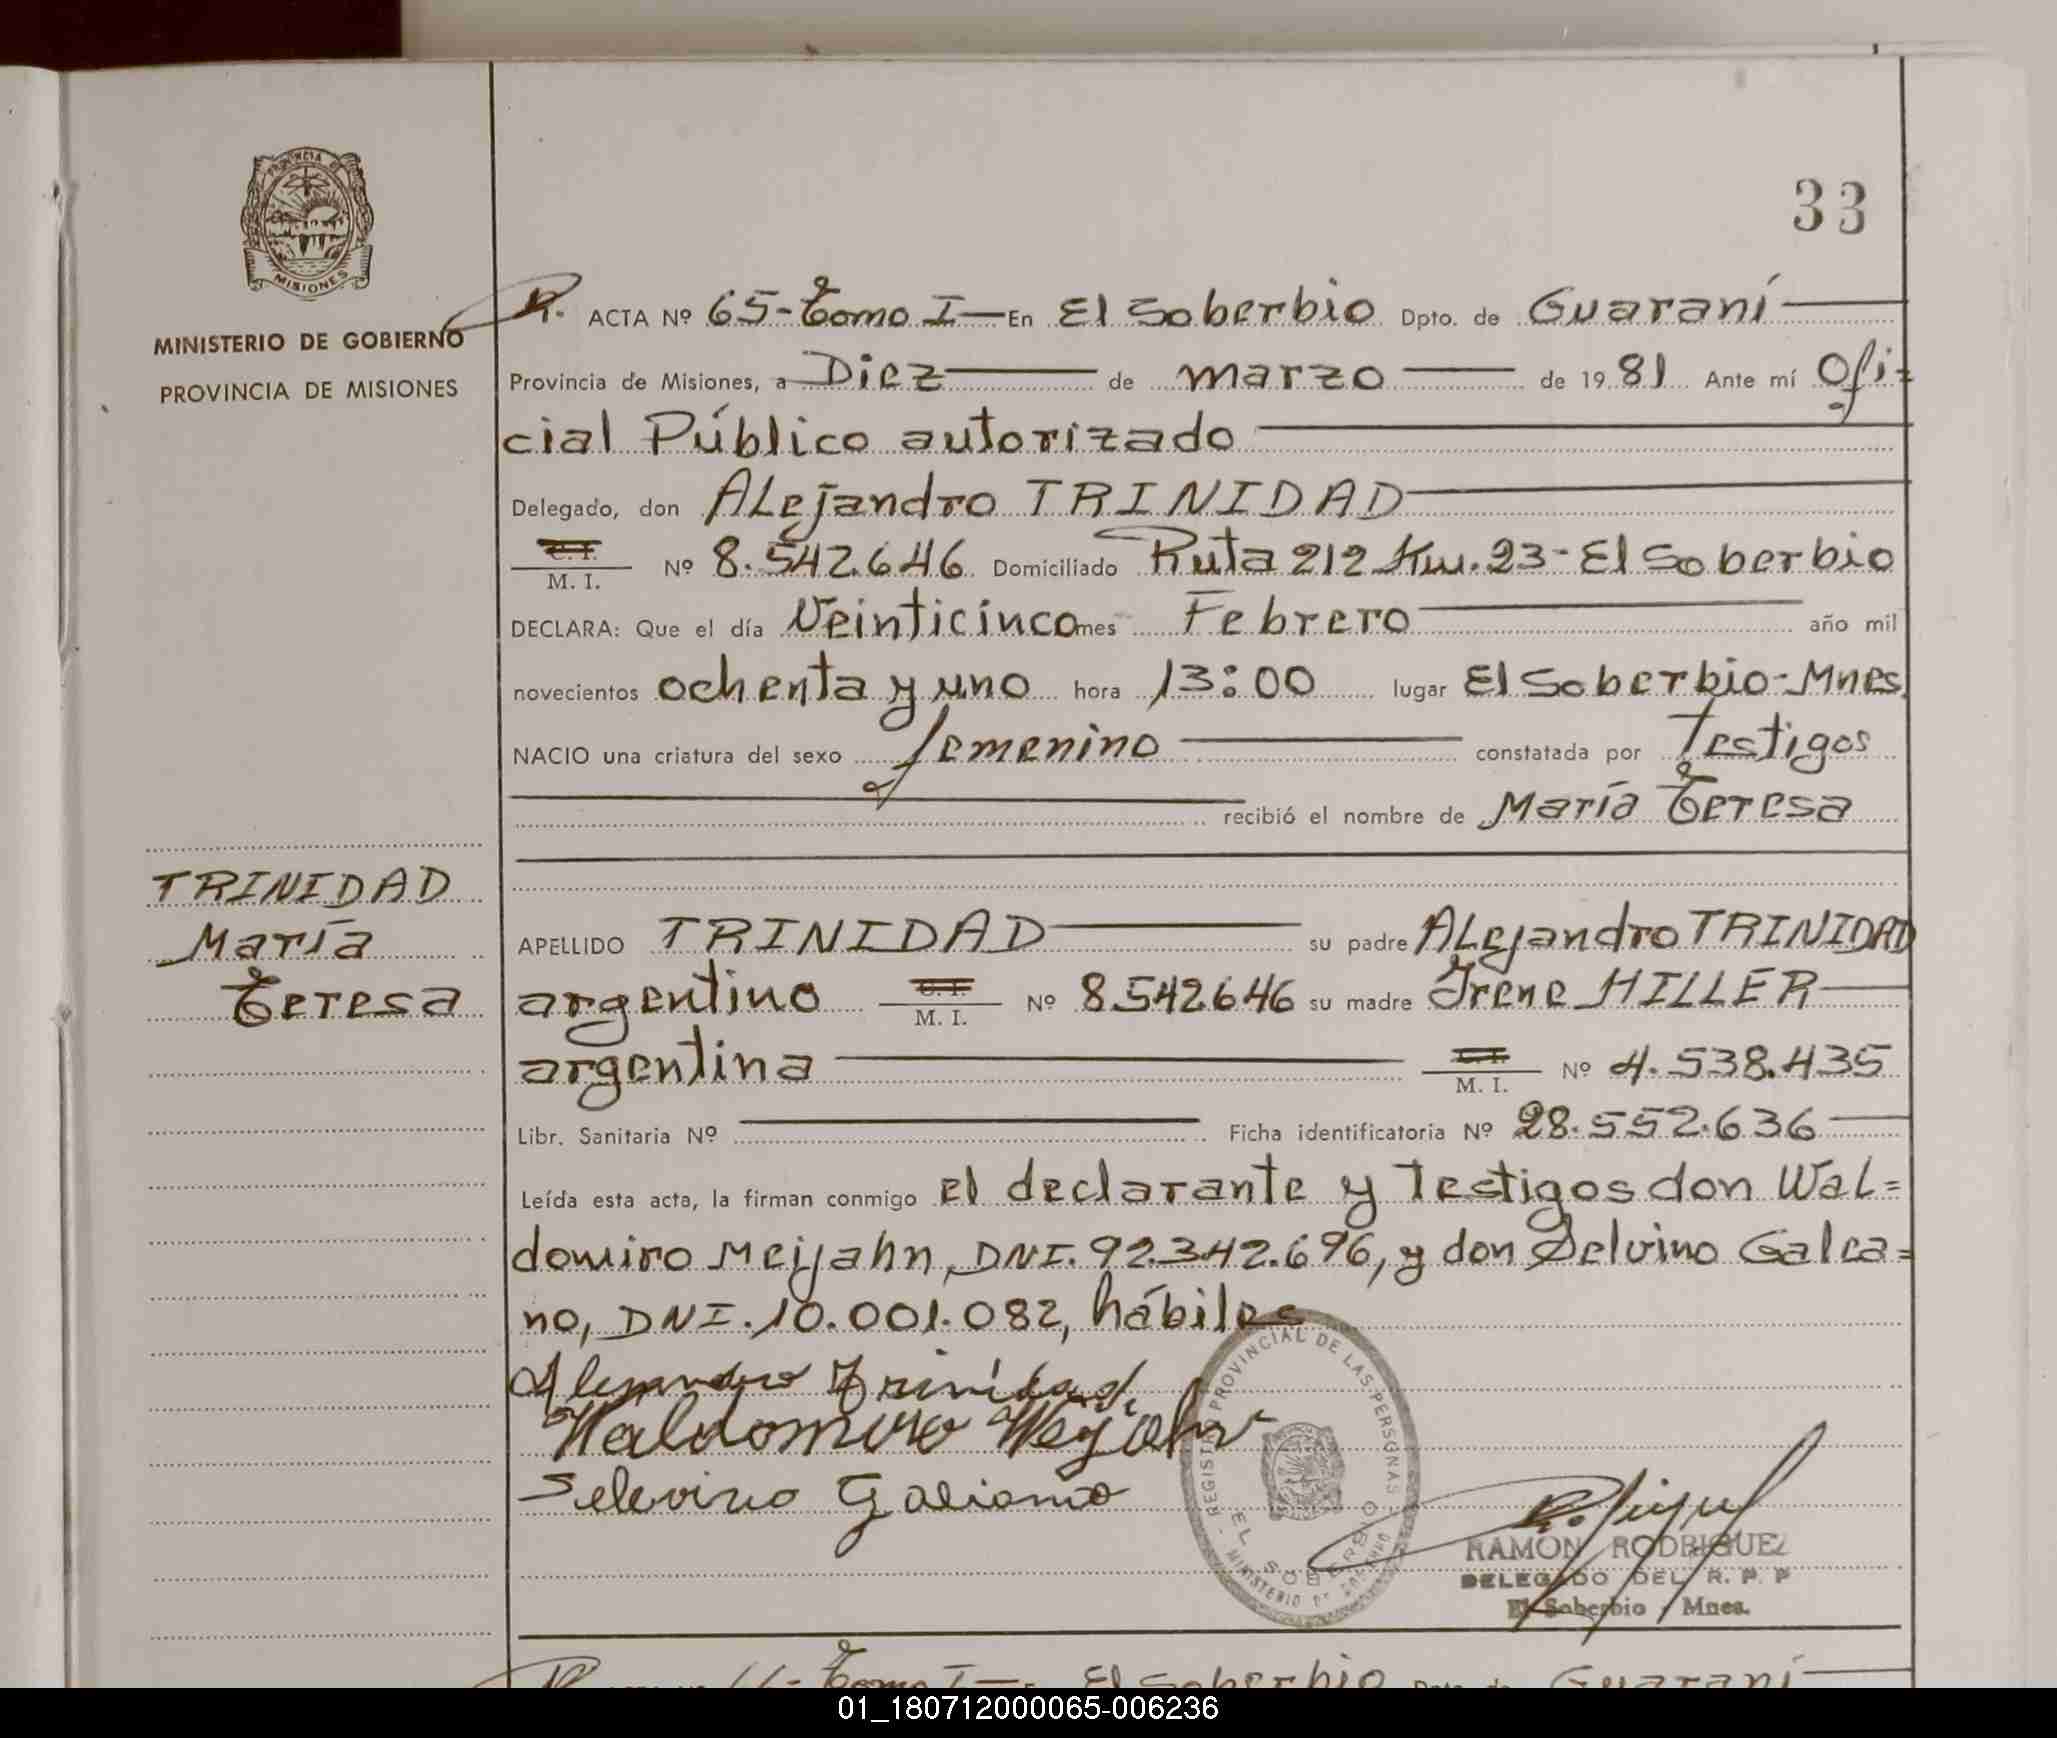 33
PROVINCIA DE
MISIONES
MINISTERIO DE GOBIERNO
PROVINCIA DE MISIONES
R. ACTA Nº 65-Tomo I- En El Soberbio Dpto. de Guaraní
Provincia de Misiones, a Diez de marzo de 1981 Ante mí Ofi-
cial Público autorizado
Delegado, don Alejandro TRINIDAD
C. I. M. I. Nº 8.542.646 Domiciliado Ruta 212 Km. 23 - El Soberbio
DECLARA: Que el día Veinticinco mes Febrero año mil
novecientos ochenta y uno hora 13:00 lugar El Soberbio-Mnes.
NACIO una criatura del sexo femenino constatada por Testigos
recibió el nombre de María Teresa
TRINIDAD
María
Teresa
APELLIDO TRINIDAD su padre Alejandro TRINIDAD
argentino C. I. M. I. Nº 8.542.646 su madre Irene HILLER
argentina C. I. M. I. Nº 4.538.435
Libr. Sanitaria Nº Ficha identificatoria Nº 28.552.636
Leída esta acta, la firman conmigo el declarante y Testigos don Wal=
domiro Meijahn, DNI. 92.342.696, y don Selvino Galea=
no, DNI. 10.001.082, hábiles
Alejandro Trinidad
Waldomiro Meyahn
Selvino Galiano
REGISTRO PROVINCIAL DE LAS PERSONAS
EL SOBERBIO
MINISTERIO DE GOBIERNO
RAMON RODRIGUEZ
DELEGADO DEL R. P. P
El Soberbio - Mnes.
Tomo I- El Soberbio Dpto. de Guaraní
01_180712000065-006236